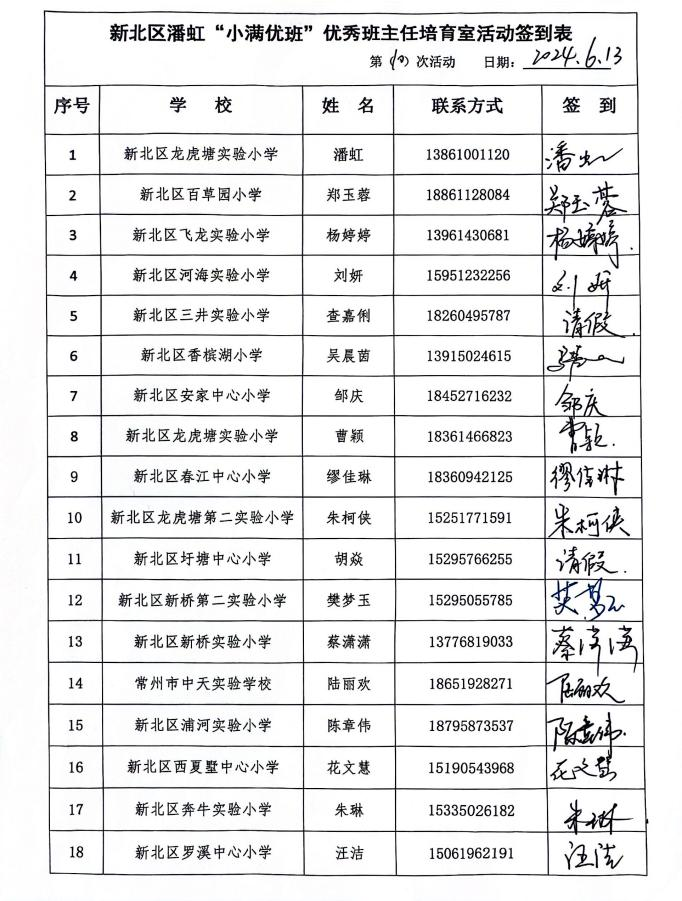 新北区潘虹“小满优班”优秀班主任培育室活动签到表
第(10)次活动 日期: 2024.6.13
序号 学 校 姓 名 联系方式 签 到
1 新北区龙虎塘实验小学 潘虹 13861001120 潘虹
2 新北区百草园小学 郑玉蓉 18861128084 郑玉蓉
3 新北区飞龙实验小学 杨婷婷 13961430681 杨婷婷.
4 新北区河海实验小学 刘妍 15951232256 刘妍
5 新北区三井实验小学 查嘉俐 18260495787 请假.
6 新北区香槟湖小学 吴晨茵 13915024615
7 新北区安家中心小学 邹庆 18452716232 邹庆
8 新北区龙虎塘实验小学 曹颖 18361466823 曹颖.
9 新北区春江中心小学 缪佳琳 18360942125 缪佳琳
10 新北区龙虎塘第二实验小学 朱柯侠 15251771591 朱柯侠
11 新北区圩塘中心小学 胡焱 15295766255 请假.
12 新北区新桥第二实验小学 樊梦玉 15295055785 樊梦玉
13 新北区新桥实验小学 蔡潇潇 13776819033 蔡潇潇
14 常州市中天实验学校 陆丽欢 18651928271 陆丽欢
15 新北区浦河实验小学 陈章伟 18795873537 陈章伟.
16 新北区西夏墅中心小学 花文慧 15190543968 花文慧
17 新北区奔牛实验小学 朱琳 15335026182 朱琳.
18 新北区罗溪中心小学 汪洁 15061962191 汪洁